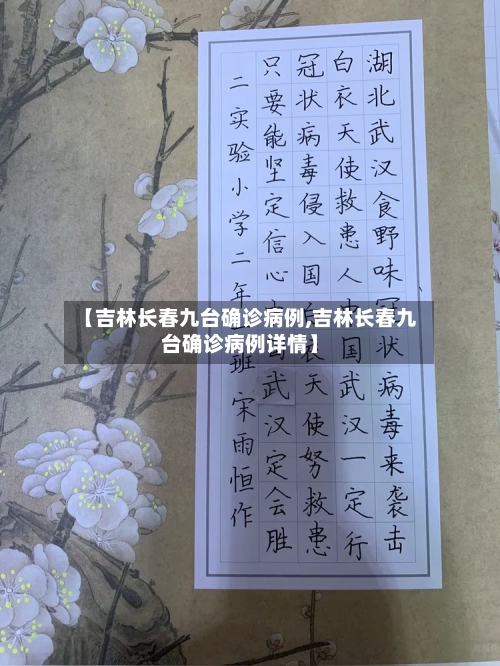 湖北武汉食野味冠状病毒来袭击
白衣天使救患人中国武汉一定行
冠状病毒侵入国白衣天使努救患
只要能坚定信心中国武汉定会胜
二实验小学二年班宋雨恒作
【吉林长春九台确诊病例,吉林长春九
台确诊病例详情】